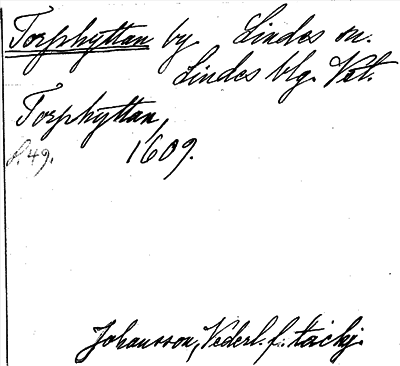 Torphyttan by Lindes sn.
Lindes blg. Vstl.
Torphyttan,
s. 49. 1609.
Johansson, Vederl. f. täckj.